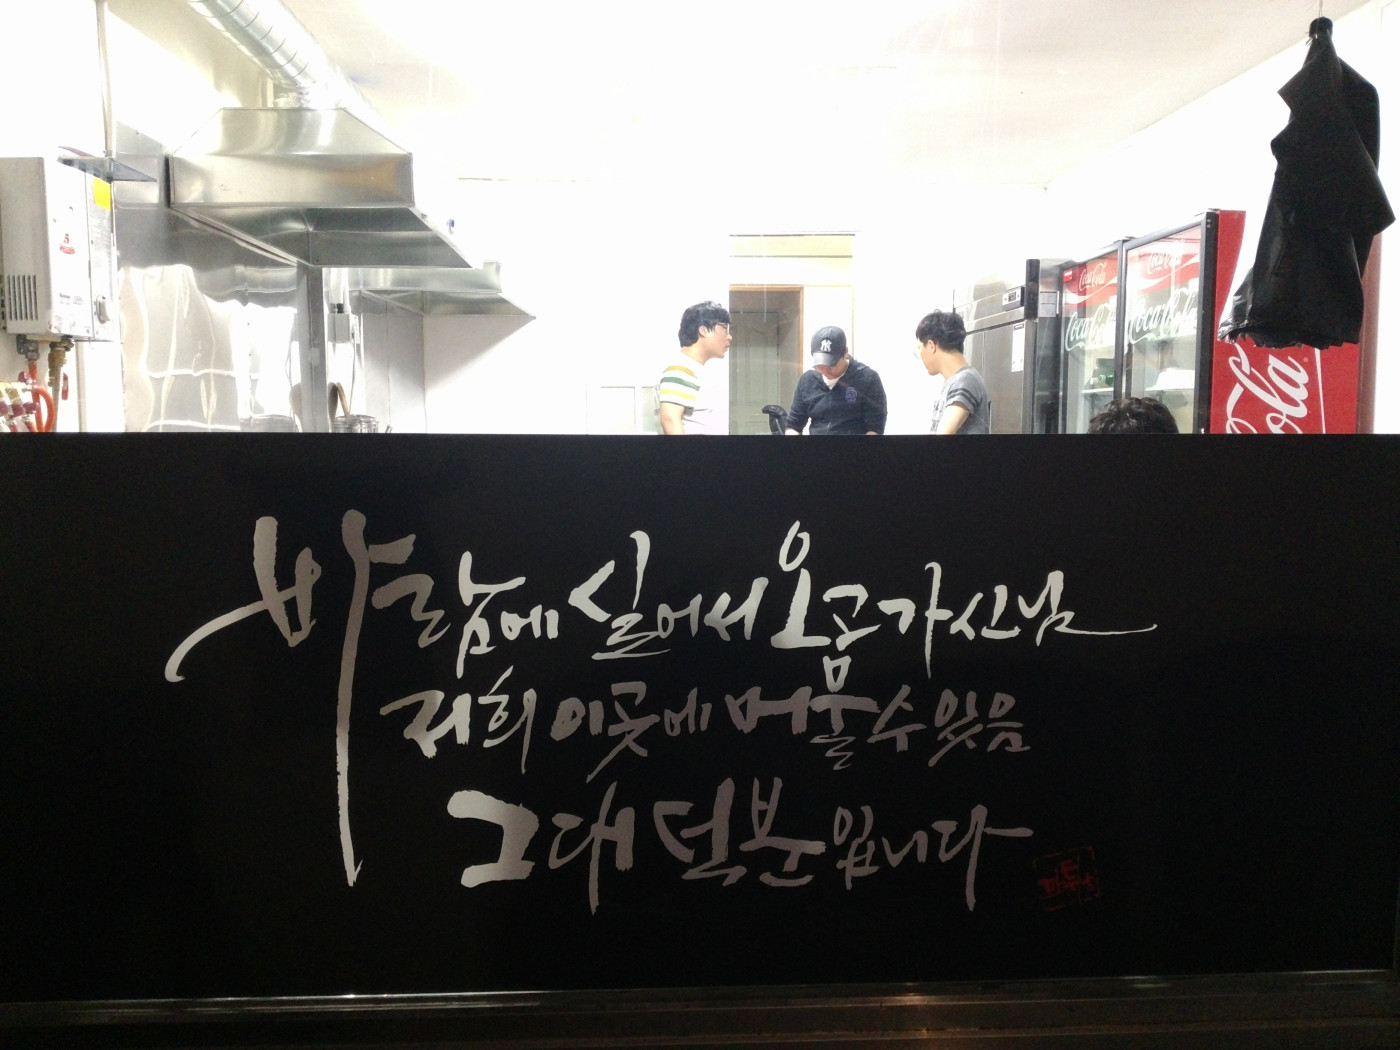 바람에 실어서 오곰가신님
저희 이곳에 머물 수 있음
그대 덕분입니다
Coca-Cola
Coca-Cola
Coca-Cola
Coca-Cola
NY
5